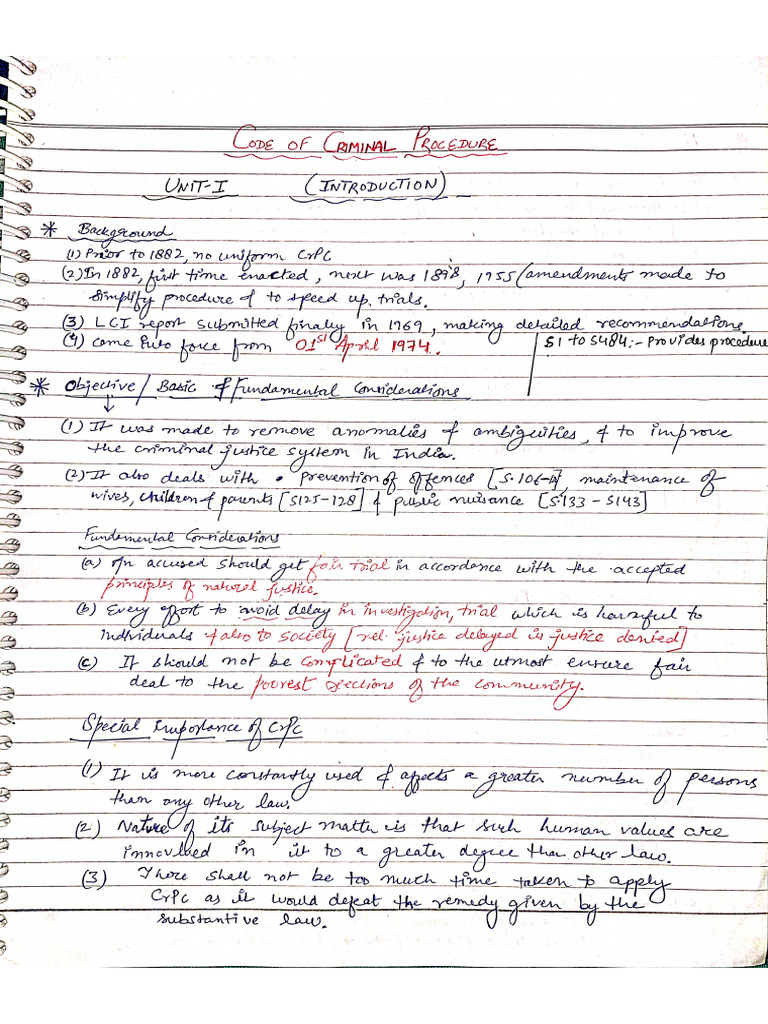 CODE OF CRIMINAL PROCEDURE
UNIT-I (INTRODUCTION)
* Background
(1) Prior to 1882, no uniform CrPC
(2) In 1882, first time enacted, next was 1898, 1955 (amendments made to
simplify procedure & to speed up trials.
(3) LCI report submitted finally in 1969, making detailed recommendations.
(4) came into force from 01st April 1974.
S1 to S484:- Provides procedure
* Objective / Basic & Fundamental Considerations
↓
(1) It was made to remove anomalies & ambiguities, & to improve
the criminal justice system in India.
(2) It also deals with • prevention of offences [S.106-], maintenance of
wives, children & parents [S125-128] & public nuisance [S.133 - S143]
Fundamental Considerations
(a) An accused should get fair trial in accordance with the accepted
principles of natural justice.
(b) Every effort to avoid delay in investigation, trial which is harmful to
individuals & also to society [rel. justice delayed is justice denied]
(c) It should not be complicated & to the utmost ensure fair
deal to the poorest sections of the community.
Special Importance of CrPC
(1) It is more constantly used & affects a greater number of persons
than any other law.
(2) Nature of its subject matter is that such human values are
innovlved in it to a greater degree than other law.
(3) There shall not be too much time taken to apply
CrPC as it would defeat the remedy given by the
substantive law.